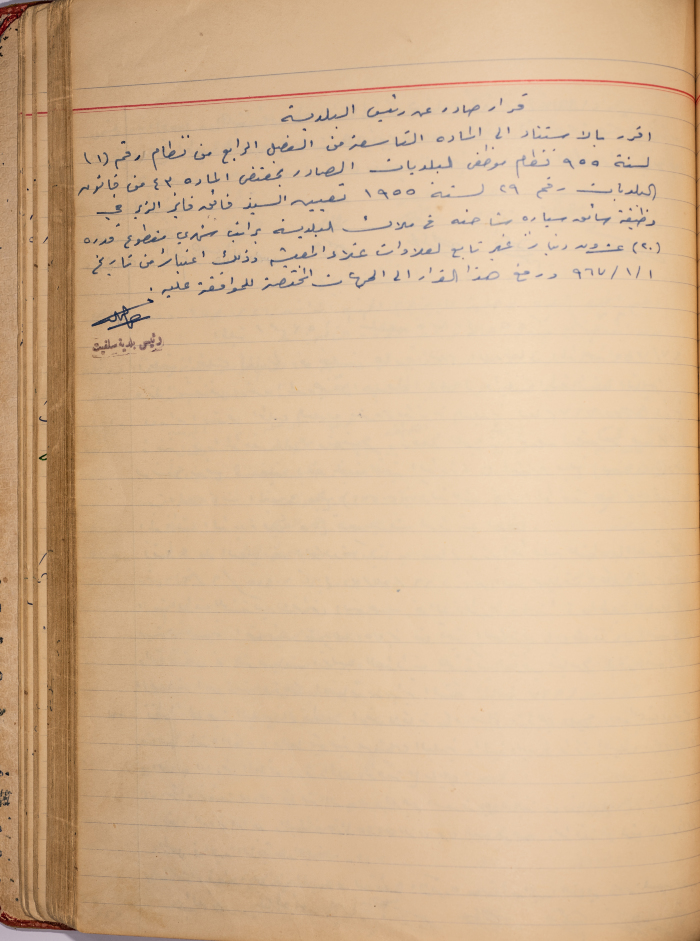 قرار صادر عن رئيس البلدية
اقرر بالاستناد الى الماده التاسعة من الفصل الرابع من نظام رقم (١)
لسنة ٩٥٥ نظام موظفي البلديات الصادر بمقتضى الماده ٤٣ من قانون
البلديات رقم ٢٩ لسنة ١٩٥٥ تعيين السيد فائق فايز الزير في
وظيفة سائق سياره شاحنه في ملاك البلدية براتب شهري مقطوع قدره
(٢٠) عشرون دينار غير تابع لعلاوات غلاء المعيشه وذلك اعتبارا من تاريخ
١/١/٩٦٧ ورفع هذا القرار الى الجهات المختصة للموافقة عليه.
رئيس بلدية سلفيت